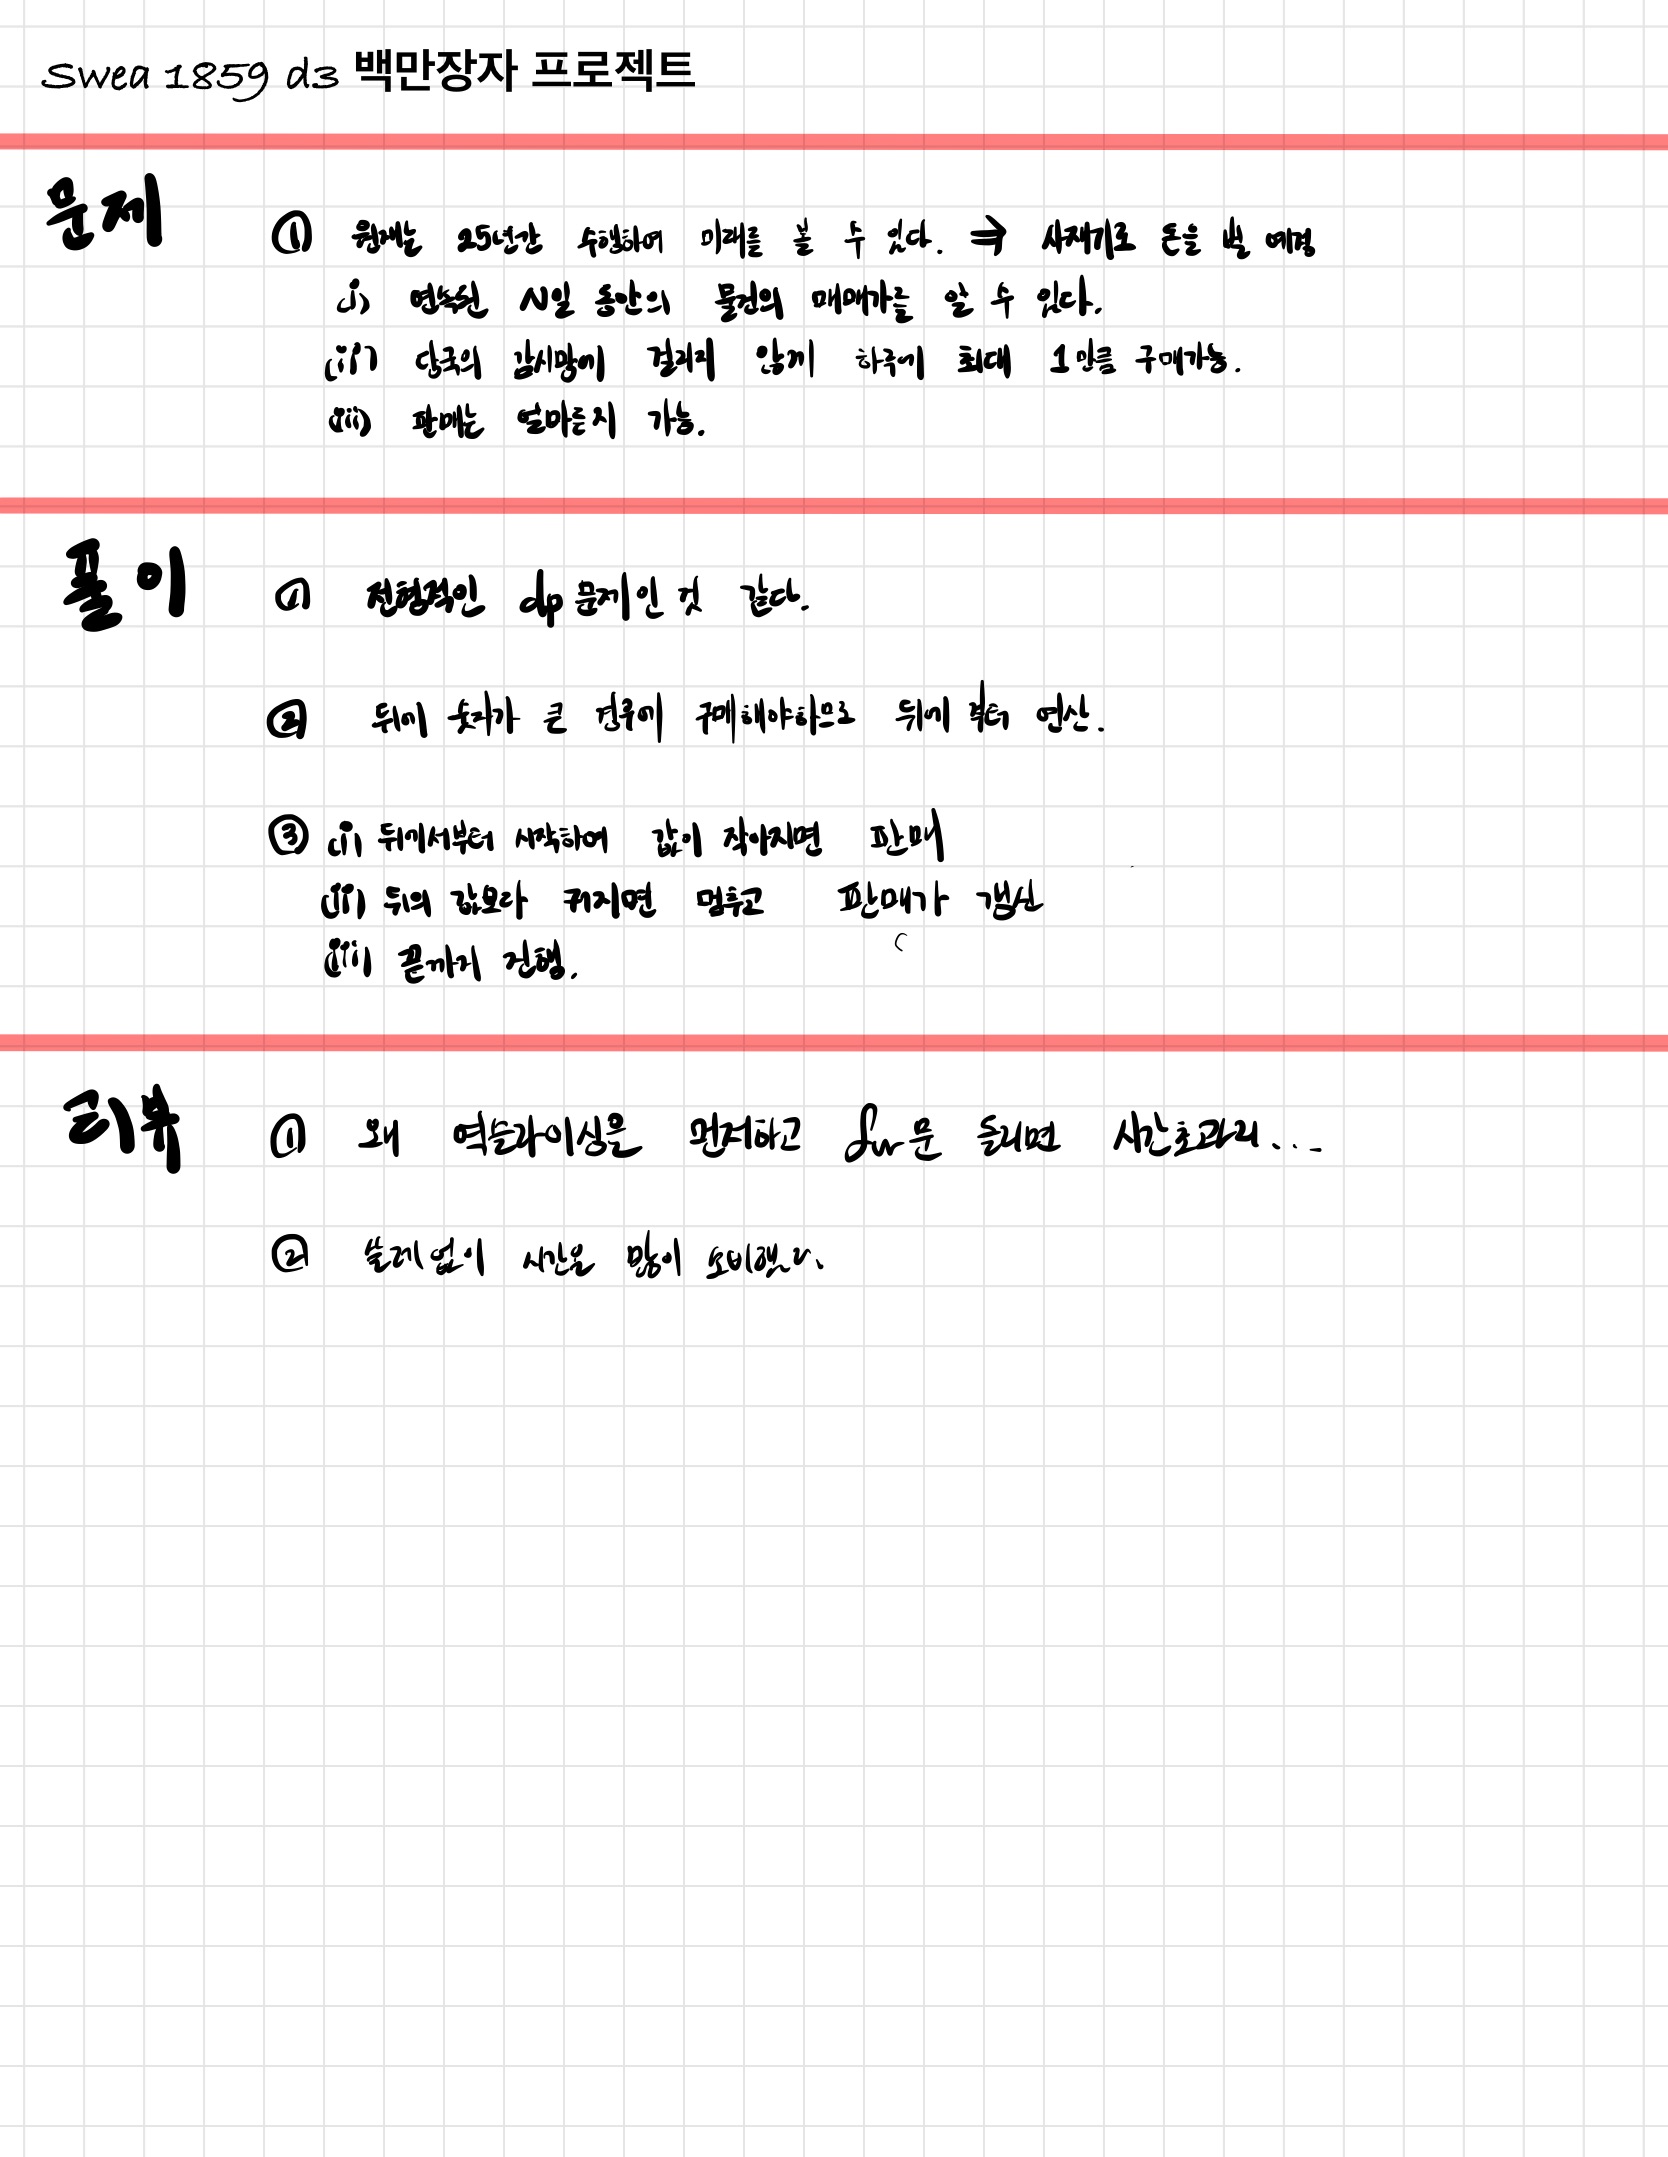 swea 1859 d3 백만장자 프로젝트
문제
① 원재는 25년간 수행하여 미래를 볼 수 있다. ⇒ 사재기로 돈을 벌 예정
(i) 연속된 N일 동안의 물건의 매매가를 알 수 있다.
(ii) 당국의 감시망에 걸리지 않게 하루에 최대 1만큼 구매가능.
(iii) 판매는 얼마든지 가능.
풀이
① 전형적인 dp문제인 것 같다.
② 뒤에 숫자가 큰 경우에 구매해야하므로 뒤에 부터 연산.
③ (i) 뒤에서부터 시작하여 값이 작아지면 판매
(ii) 뒤의 값보다 커지면 멈추고 판매가 갱신
(iii) 끝까지 진행.
리뷰
① 왜 역슬라이싱을 먼저하고 for문 돌리면 시간초과리...
② 쓸데없이 시간을 많이 소비했다.